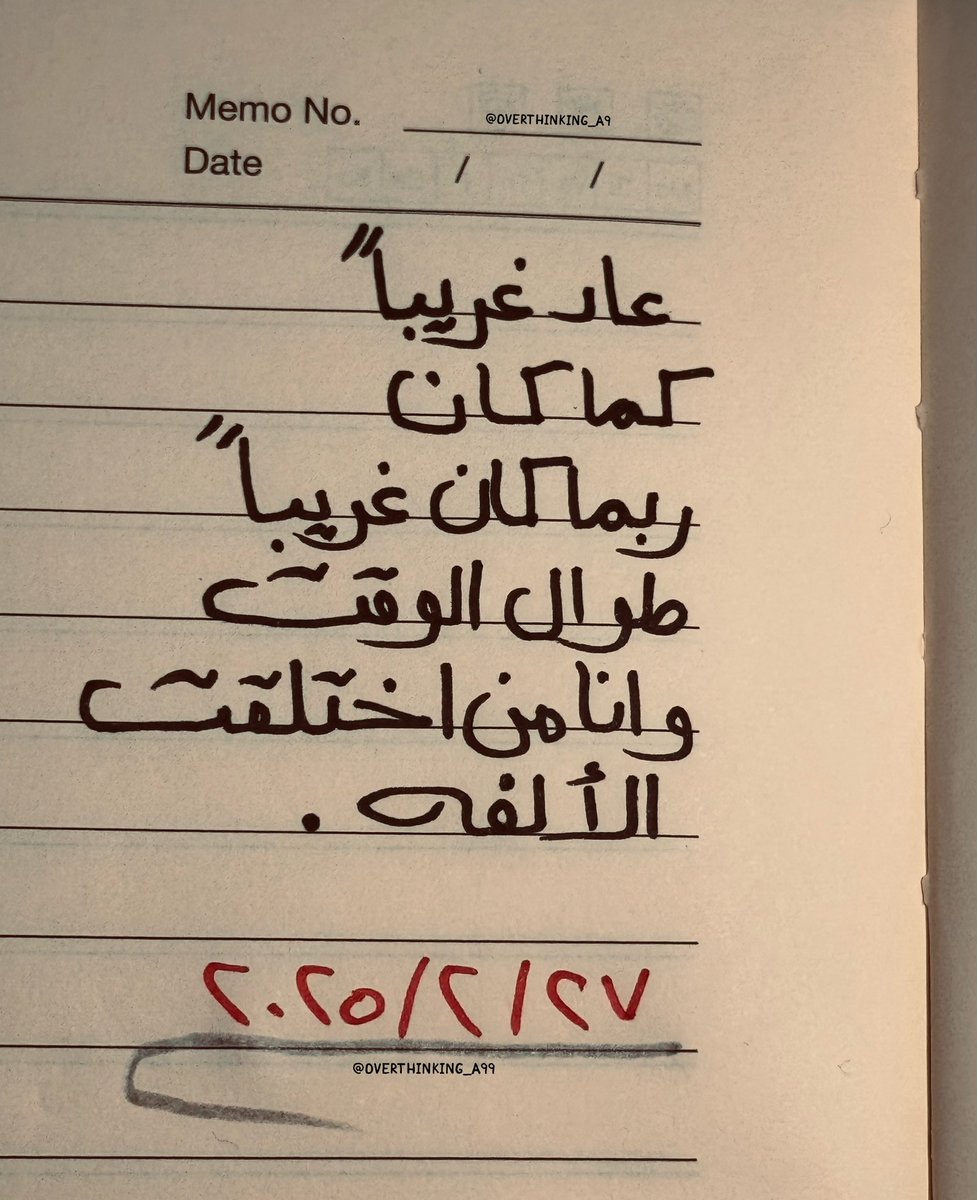 Memo No. @OVERTHINKING_A9
Date / /
عاد غريباً
كما كان
ربما كان غريباً
طوال الوقت
وانا من اختلقت
الألفه .
٢٠٢٥/٢/٢٧
@OVERTHINKING_A99